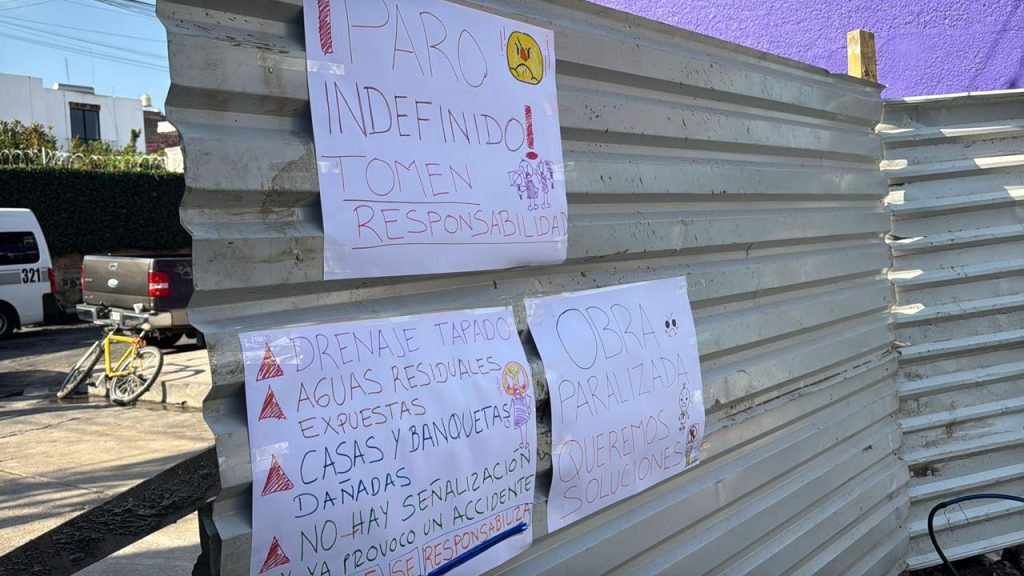 ¡PARO
INDEFINIDO!
TOMEN
RESPONSABILIDAD
DRENAJE TAPADO
AGUAS RESIDUALES
EXPUESTAS
CASAS Y BANQUETAS
DAÑADAS
NO HAY SEÑALIZACIÓN
Y YA PROVOCO UN ACCIDENTE
RESPONSABILIZA
OBRA
PARALIZADA
QUEREMOS
SOLUCIONES
321